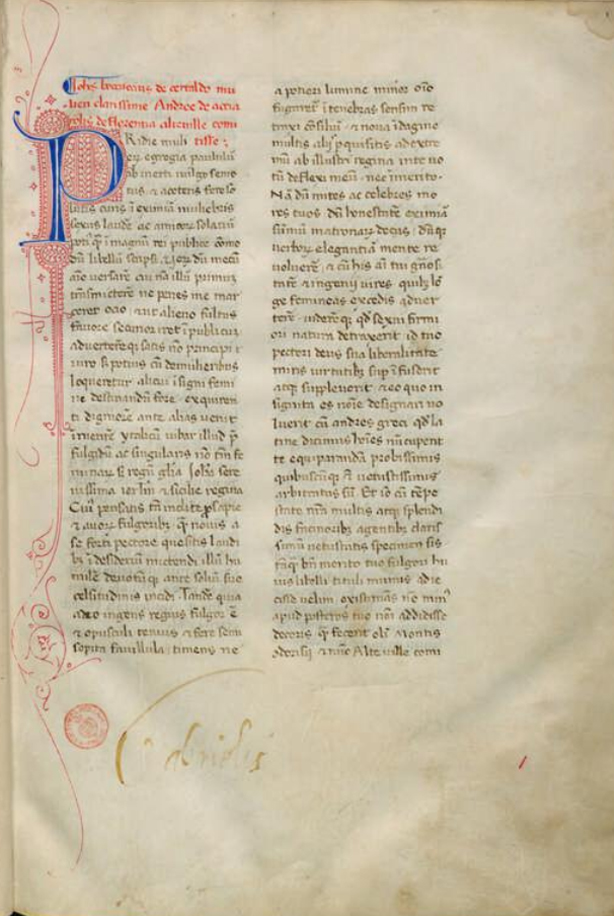 Iohis boccacius de certaldo mu
lieri clarissime Andree de accia
rolis de florentia alteuille comi
tisse
PRidie mulierum
egregia paululum
ab inerti uulgo semo
tus et a ceteris fere so
lutus curis ī eximiā muliebris
sexus laudē ac amicorū solatiū
potiꝰ qͣ ī magnū rei publice cōmo
dū libellū scripsi. et ꝫ dū mecū
aīo uersarē cui nā illū primum
trāsmicterē ne penes me mar
ceret ocio et ut alieno fultus
fauore securior iret ī publicum
aduerterēqꝫ satis nō principi
uiro sꝫ potius cū de mulieribus
loqueretur alicui īsigni femi
ne destinandū fore exquiren
ti digniorē ante alias uenit
ī mentē ytalicū iubar illud p̄
fulgidū ac singularis nō tm̄ fe
minarū sꝫ regū glīa Iohā sere
nissima ierlm̄ et sicilie regina
Cuiꝰ pensatis tā inclite prosapie
et auorū fulgoribꝫ qͣ nouis a
se forti pectore quesitis laudi
bꝫ ī desideriū mictendi illū hu
milē deuotūqꝫ ante soliū sue
celsitudinis incidi. Tandē quia
adeo ingens regius fulgor ē
et opusculi tenuis et fere semi
sopita fauillula timens ne
a potiori lumine minor oīo
fugaret ī tenebras sensim re
traxi cōsiliū et noua īdagine
multis aliis pquisitis ad extre
mū ab illustri regina in te uo
tū deflexi meū nec īmerito.
Nā dū mites ac celebres mo
res tuos dū honestatē eximiā
sūmū matronarū decus dūqꝫ
uerborū elegantiā mente re
uoluerē et cū his aī tui gn̄osi
tatē et ingenii uires quibꝫ lō
ge femineas excedis aduer
terē uiderēqꝫ qd sexui firmi
ori natura detraxerit id tuo
pectori deus sua liberalitate
miris uirtutibꝫ suꝑ īfuderit
atqꝫ suppleuerit et eo quo in
signita es noīe designari uo
luerit cū andres greci qd la
tine dicimus hoīes nūcupent
te equiparandā probissimis
quibuscūqꝫ et uetustissimis
arbitratus sū. Et iō cū tēpe
state nr̄a multis atqꝫ splendi
dis facinoribꝫ agentibꝫ claris
simū uetustatis specimen sis
tāqꝫ bn̄ merito tuo fulgori hu
ius libelli tituli munus adie
cisse uelim existimās nō minꝰ
apud posteros tuo noī addidisse
decoris qͣ fecerit olī Montis
odorisii et nūc Alteuille comi
Gabrielis